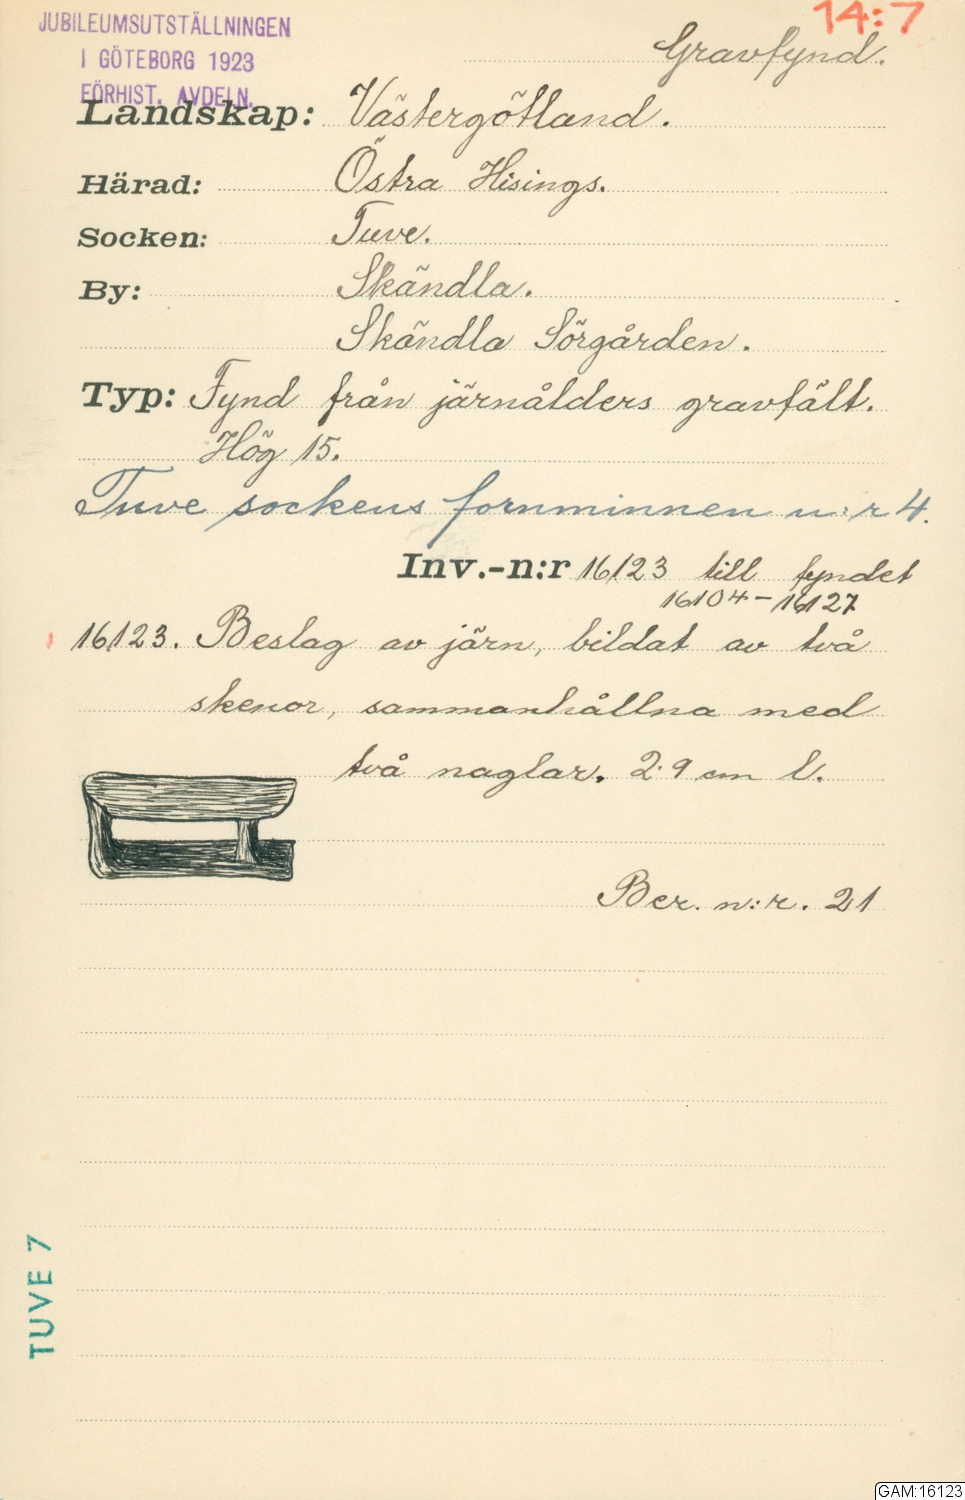 JUBILEUMSUTSTÄLLNINGEN
I GÖTEBORG 1923
FÖRHIST. AVDELN.
14:7
Gravfynd.
Landskap: Västergötland.
Härad: Östra Hisings.
Socken: Tuve.
By: Skändla.
Skändla Sörgården.
Typ: Fynd från järnålders gravfält.
Hög 15.
Tuve sockens fornminnen n:r 4.
Inv.-n:r 16123 till fyndet
16104-16127
16123. Beslag av järn, bildat av två
skenor, sammanhållna med
två naglar. 2.9 cm l.
Ber. n:r. 21
TUVE 7
GAM:16123